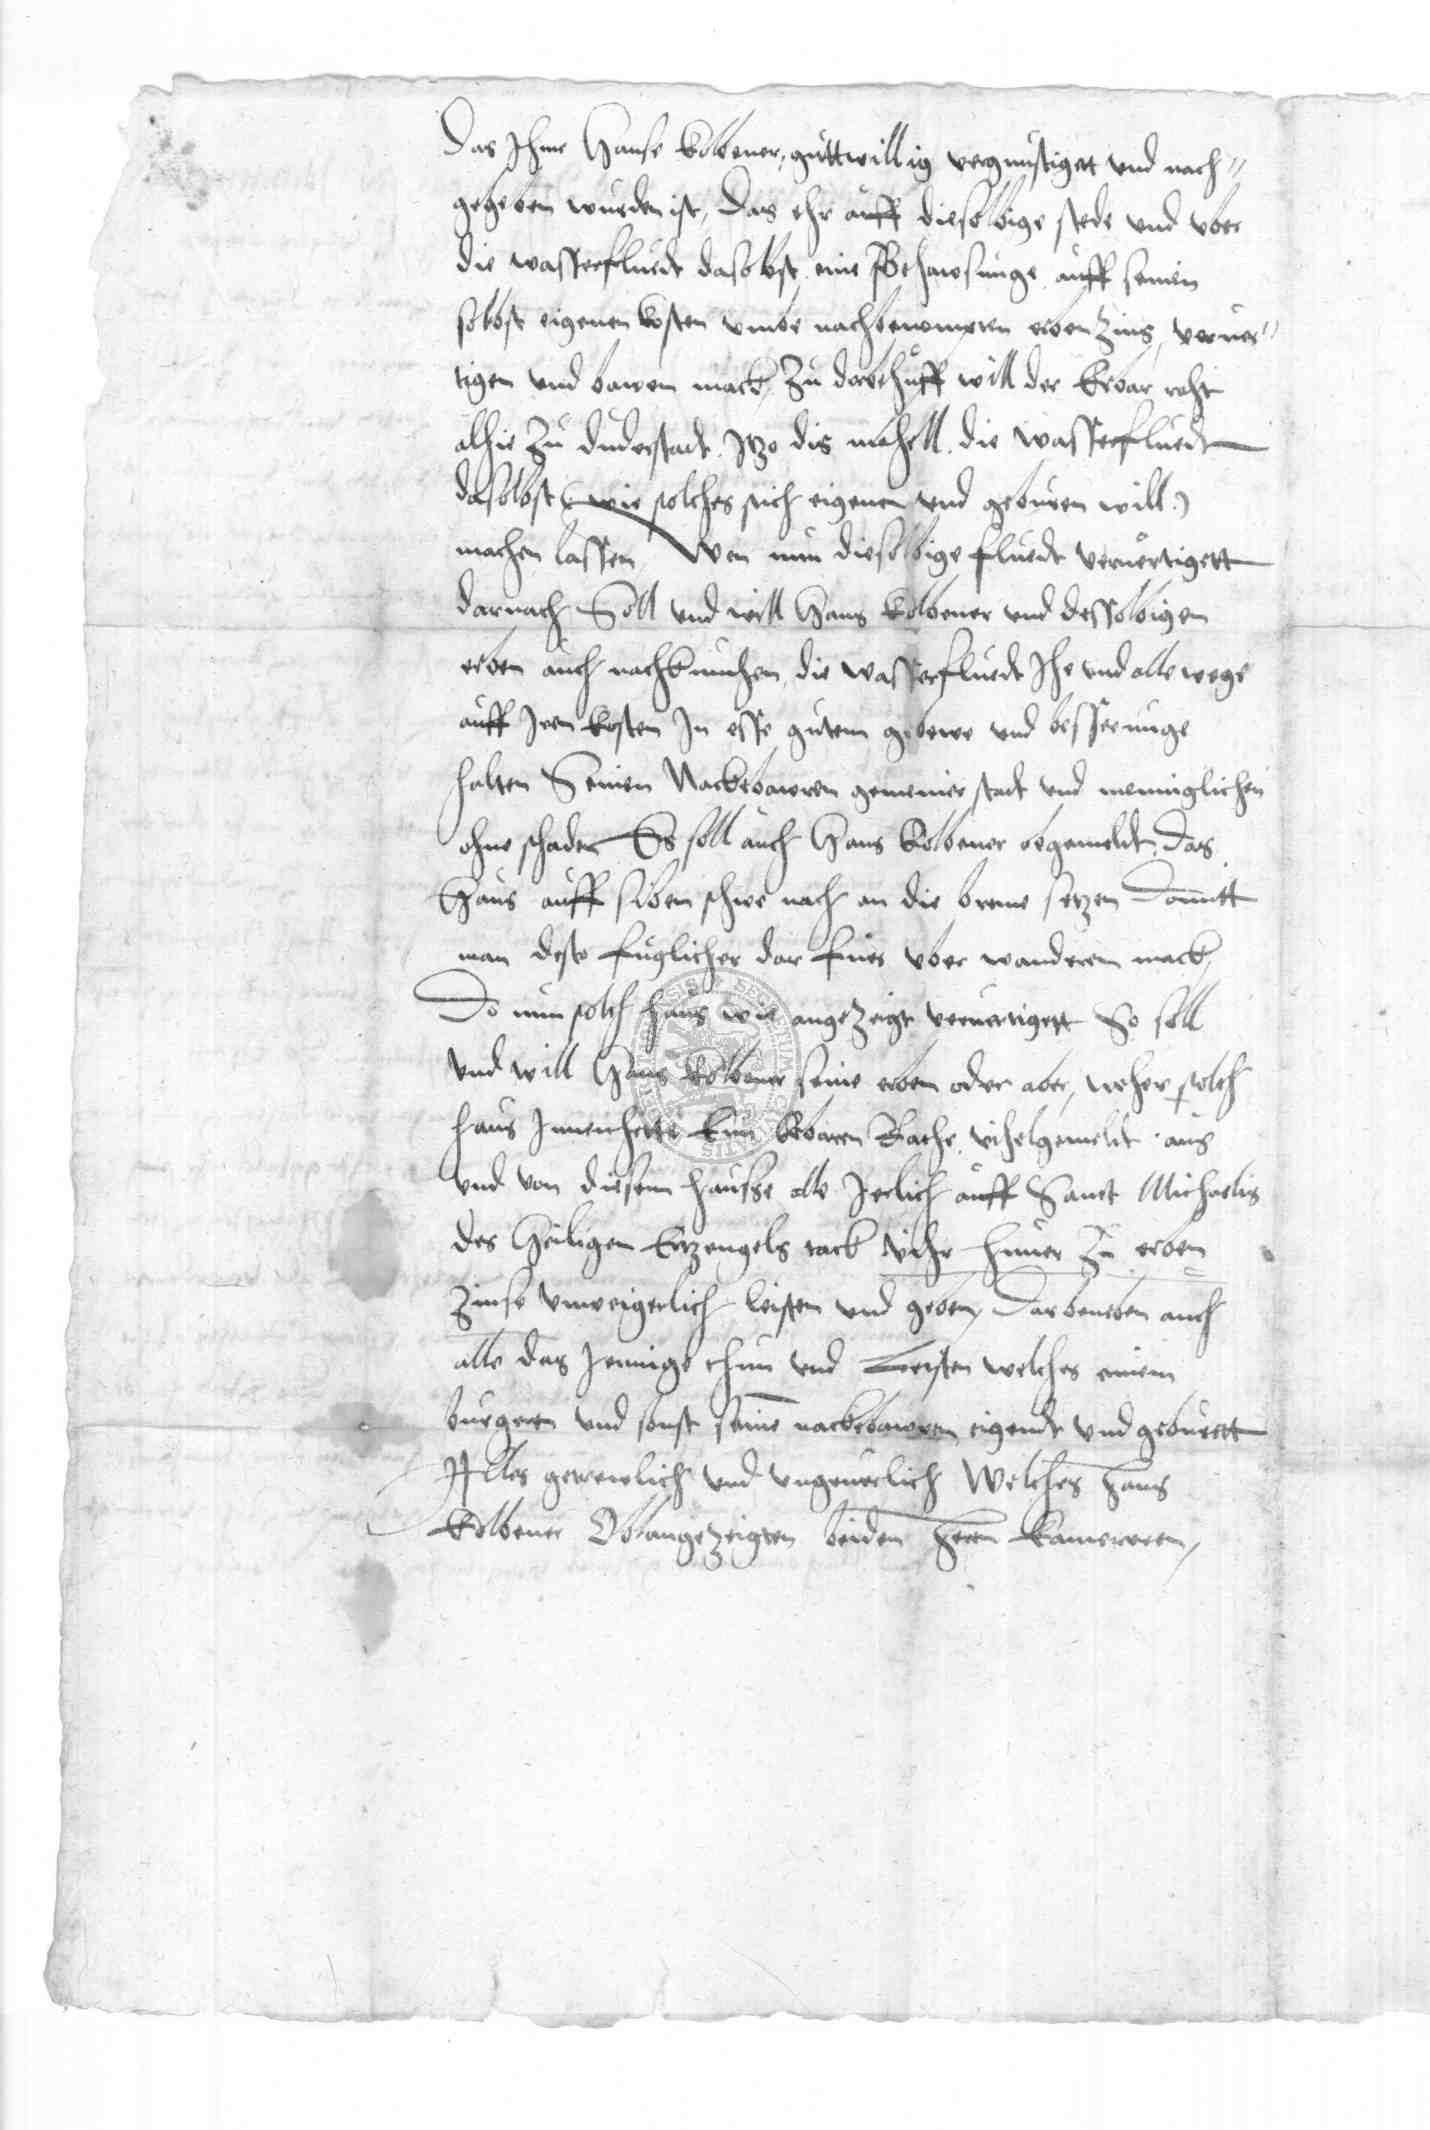 Das Ihme Hanse Kolbener, guttwillig vergunstigett vnd nach"
gegeben wurden ist, Das ehr auff dieselbige stede vnd vber
die wasserfluedt daselbst eine Behawsunge auff seinen
selbst eigenen kosten vmbe nachbenompten erben Zins, veruer"
tigen vnd bawen mack, Zu derbehuff will der Erbar raht
alhie Zu Duderstadt Itzo dis mahell die wasserfluedt
daselbst (wie solches sich eigenen vnd geburen will)
machen lassen, Wen nun dieselbige fluedt veruertigett
darnach Soll vnd will Hans Kolbener vnd desselbigen
erben auch nachkumhen, die wasserfluedt Ihe vnd allewege
auff Iren kosten In esse gutem gebewe vnd besserunge
halten Seinen Nackebawren gemeiner stadt vnd menniglichen
ohne schaden Es soll auch Hans Kolbener obgemeldt, das
Haus auff siben schue nach an die breme setzen Domitt
man desto fuglicher dar fues vber wanderen mack,
Do nun solch haus wie angezeigt veruertigett So soll
vnd will Hans Kolbener seine erben oder aber, weher solch
haus Innenhette Eim Erbaren Rathe, vihelgemeldt aus
vnd von diesem hausse alle Jerlich auff Sanct Michaelis
des Heiligen Ertzengels tack vihr huner Zu erben
Zinse vnweigerlich leisten vnd geben, Darbeneben auch
alle das Jennige thun vnd Leisten welches einem
burgeren vnd sonst seine nackebawren eigendt vnd geburett
Alles getrewlich vnd vngeuerlich Welches Hans
Kolbener Obangezeigten beiden Hern Kamereren,
SECRETUM